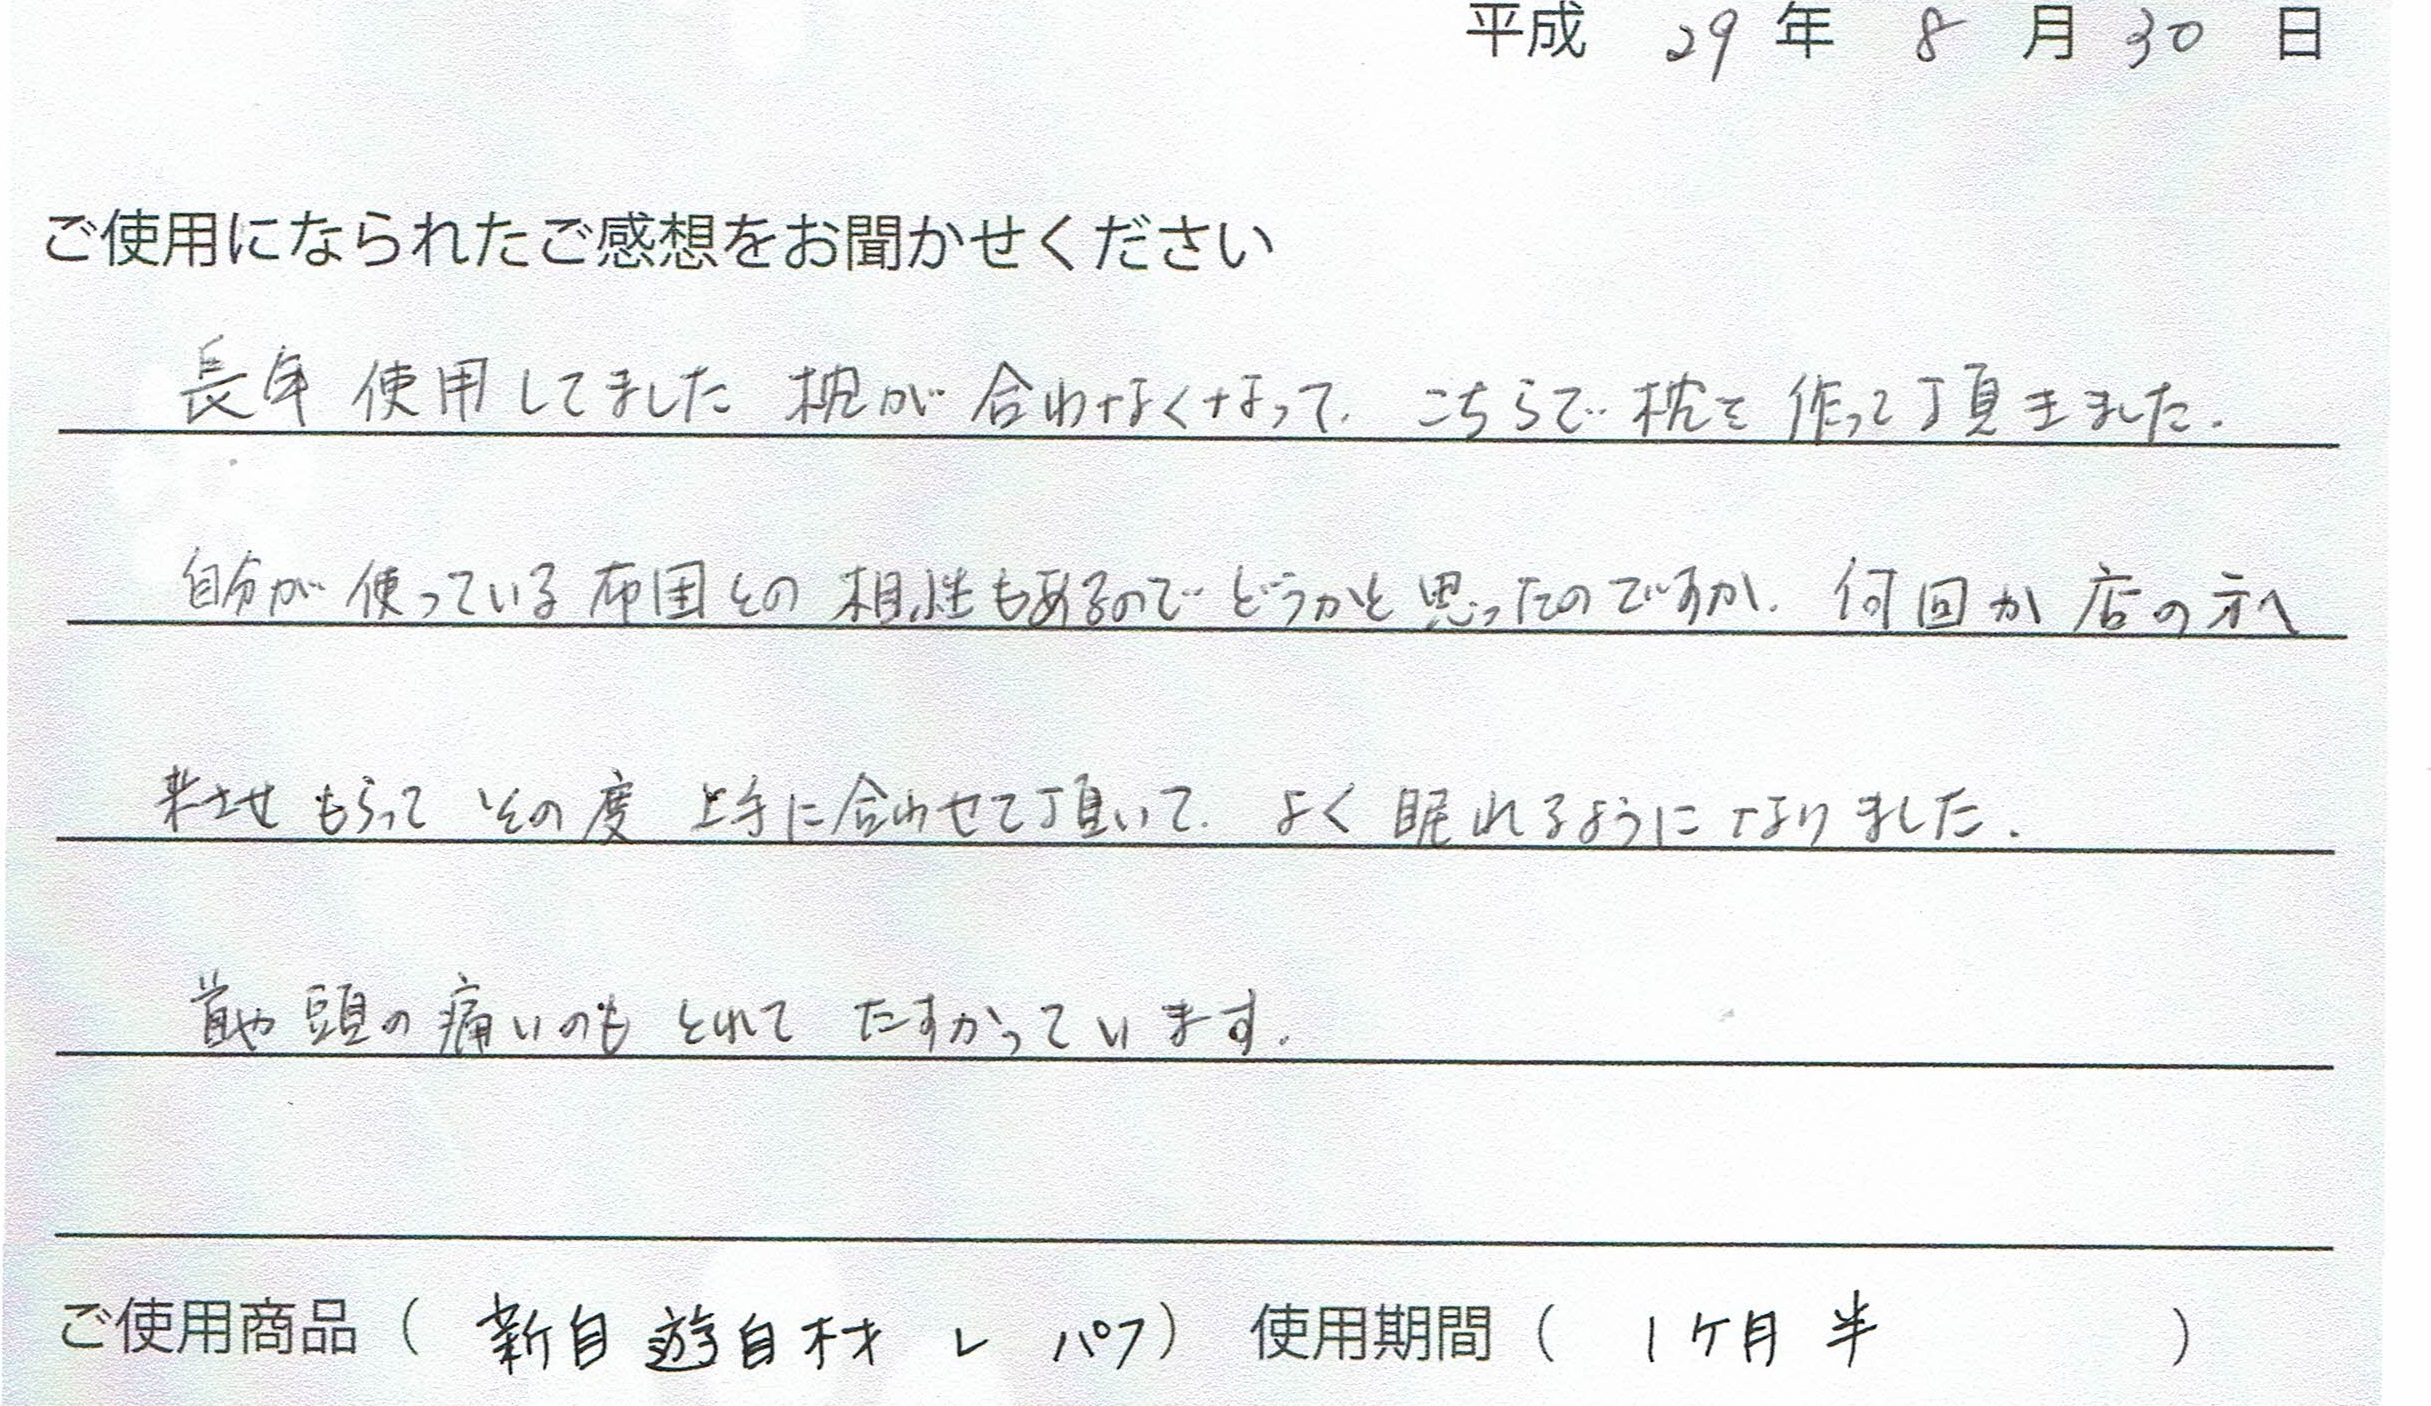 平成 29 年 8 月 30 日
ご使用になられたご感想をお聞かせください
長年 使用してました 枕が 合わなくなって、こちらで 枕を 作って頂きました。
自分が 使っている 布団との 相性もあるので どうかと 思ったのですが、何回か 店の方へ
来させもらって その度 上手に合わせて頂いて、よく 眠れるようになりました。
首や 頭の 痛いのも とれて たすかっています。
ご使用商品（ 新自遊自材 レ パフ）使用期間（ 1ヶ月半 ）